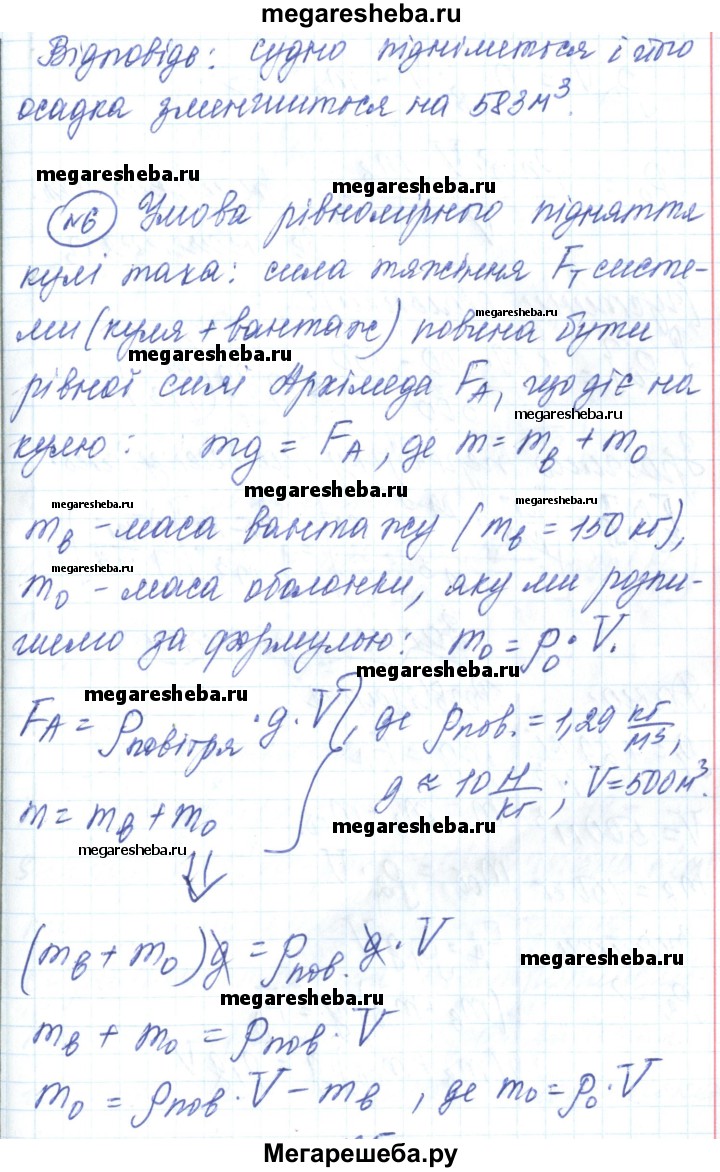 megaresheba.ru
Відповідь: судно підніметься і його
осадка зменшиться на 583 м³.
megaresheba.ru
megaresheba.ru
№6 Умова рівномірного підняття
кулі така: сила тяжіння Fт систе-
ми (куля + вантаж) повина бути
megaresheba.ru
megaresheba.ru
рівної силі Архімеда FA, що діє на
megaresheba.ru
кулю: mg = FA, де m = mв + mо
megaresheba.ru
megaresheba.ru
megaresheba.ru
mв - маса вантажу (mв = 150 кг),
megaresheba.ru
mо - маса оболонки, яку ми розпи-
шемо за формулою: mо = ρо · V.
megaresheba.ru
megaresheba.ru
FA = ρповітря · g · V, де ρпов. = 1,29 кг/м³,
g ≈ 10 Н/кг ; V = 500 м³.
m = mв + mо
megaresheba.ru
megaresheba.ru
⇓
(mв + mо)g = ρпов. g · V
megaresheba.ru
megaresheba.ru
mв + mо = ρпов · V
megaresheba.ru
mо = ρпов · V - mв , де mо = ρо · V
Мегарешеба.ру